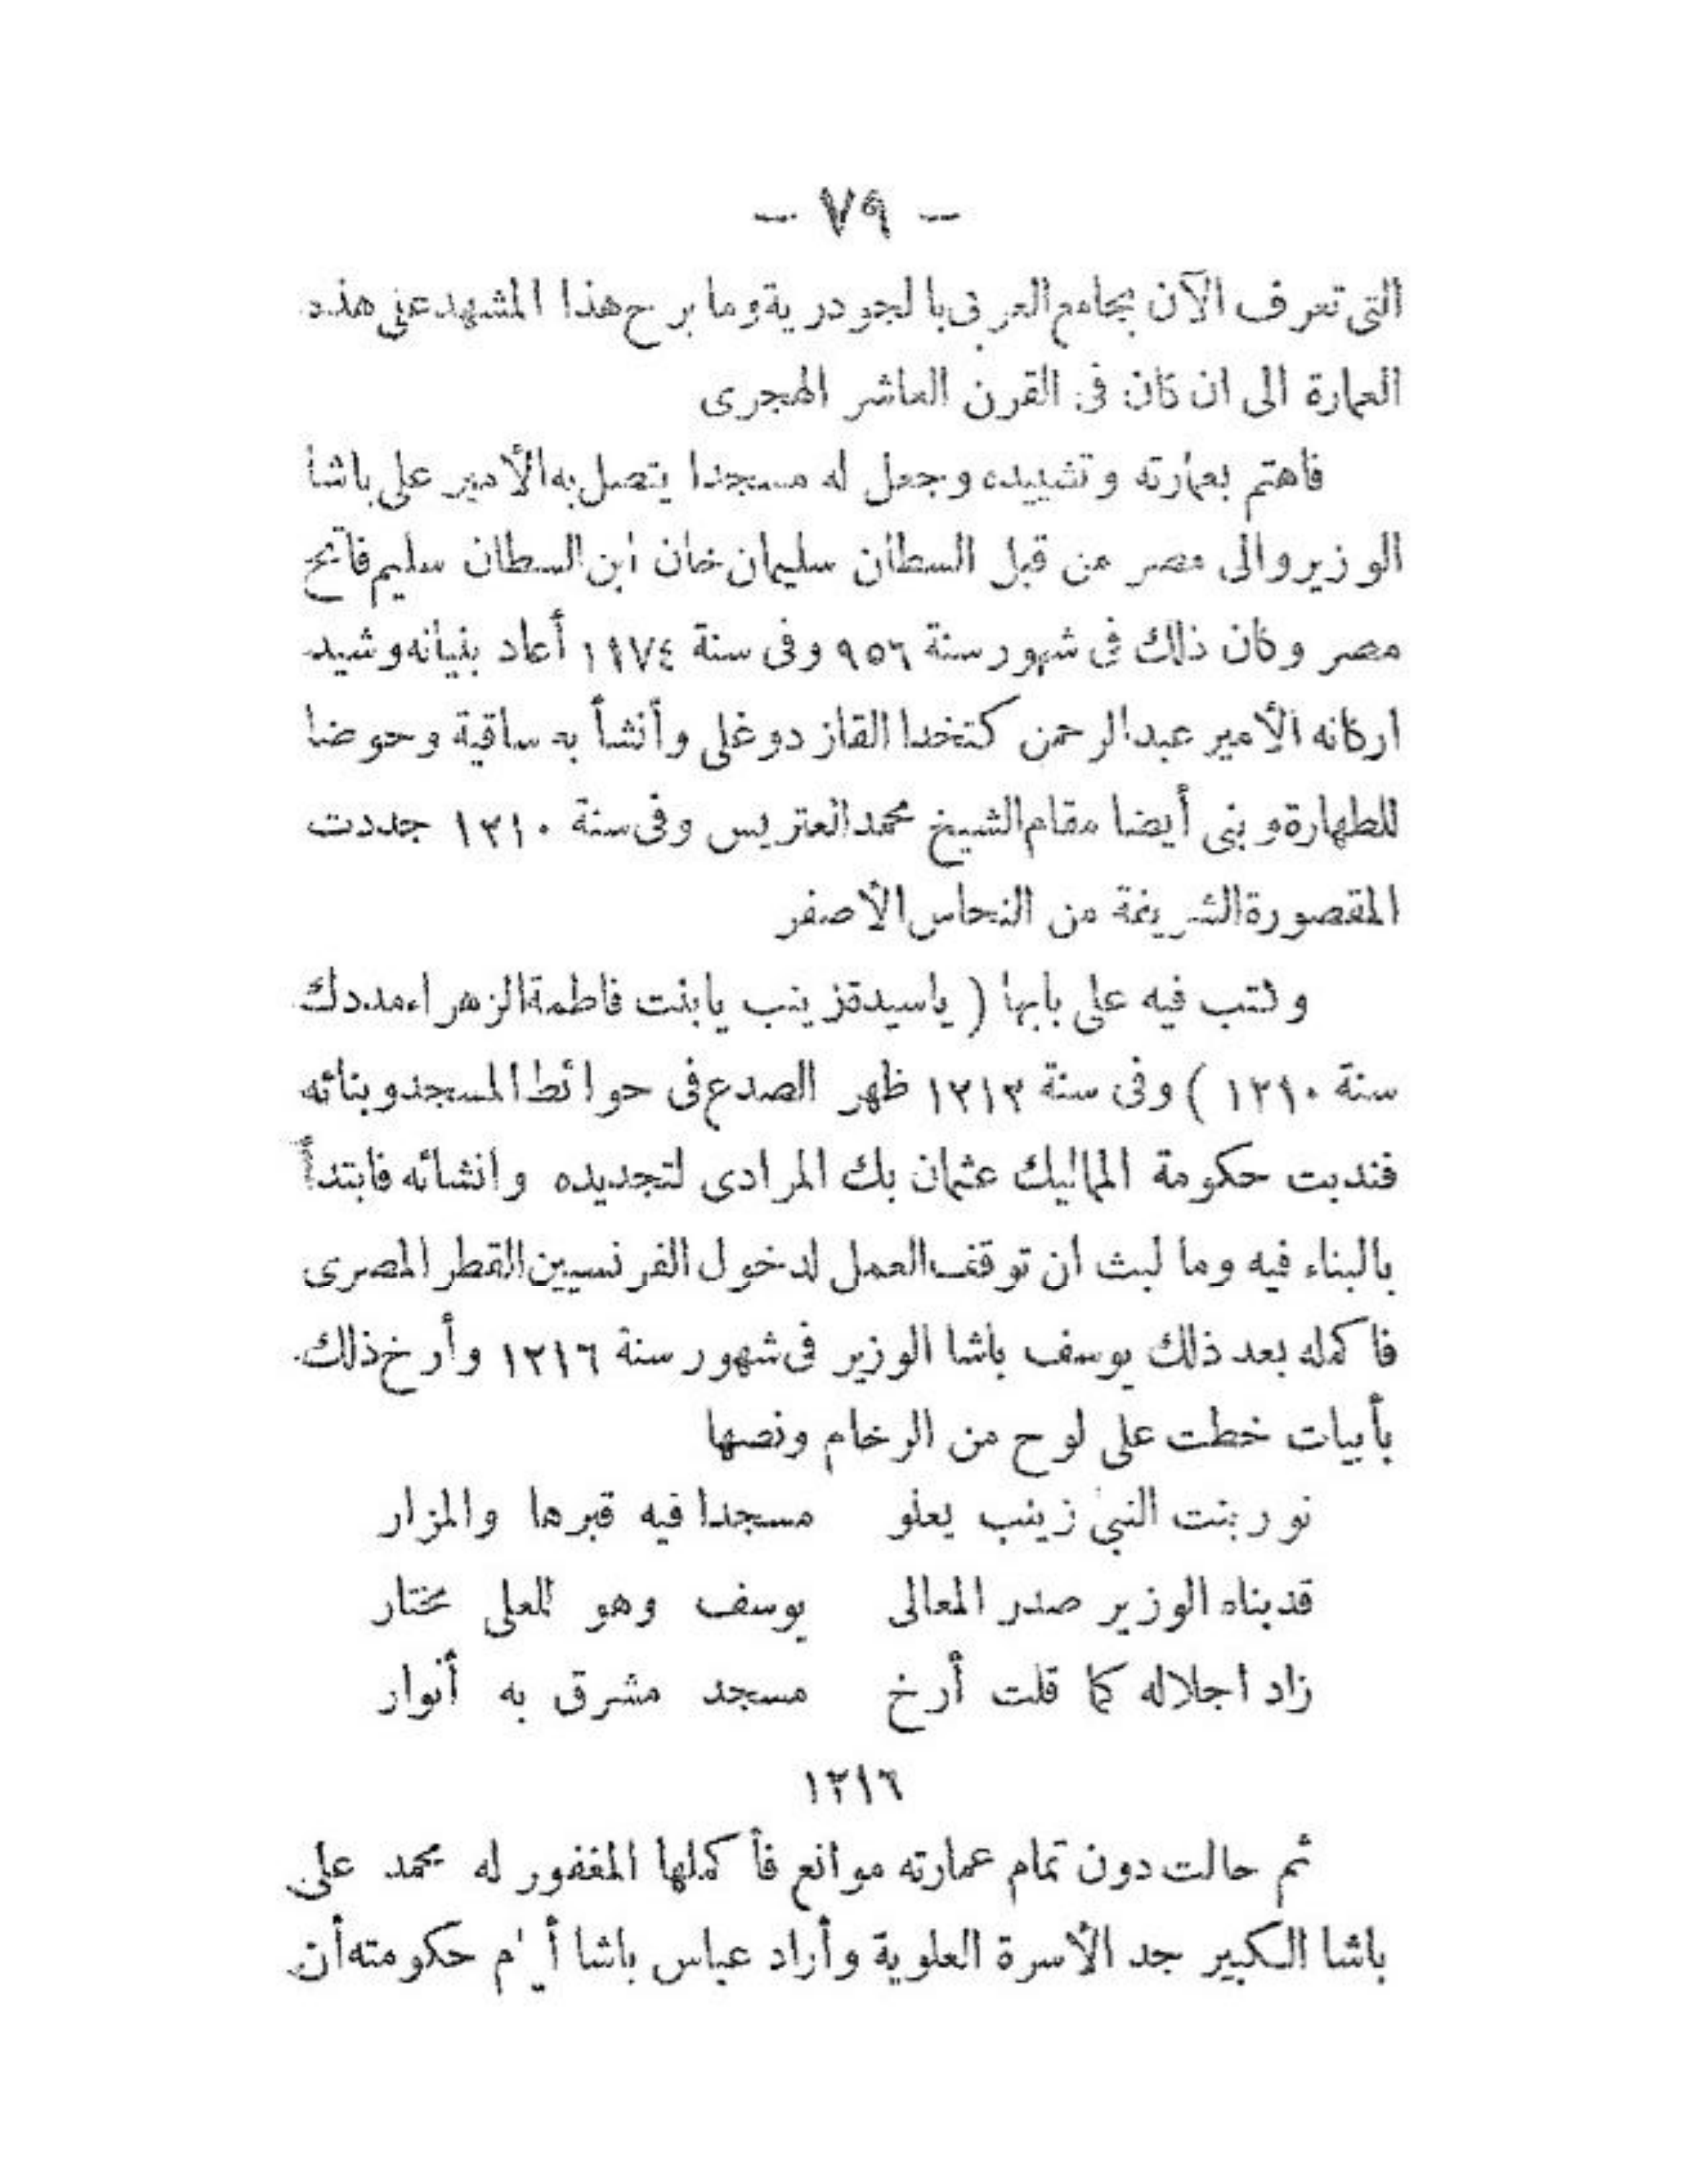 — ٧٩ —
التى تعرف الآن بجامع العربى بالجودرية وما برح هذا المشهد على هذه
العمارة الى ان كان فى القرن العاشر الهجرى
فاهتم بعمارته وتشييده وجعل له مسجدا يتصل به الأمير على باشا
الوزير والى مصر من قبل السطان سليمان خان ابن السطان سليم فاتح
مصر وكان ذلك فى شهور سنة ٩٥٦ وفى سنة ١١٧٤ أعاد بنيانه وشيد
اركانه الأمير عبد الرحمن كتخدا القازدوغلى وأنشأ به ساقية وحوضا
للطهارة وبنى أيضا مقام الشيخ محمد العتريس وفى سنة ١٢١٠ جددت
المقصورة الشريفة من النحاس الأصفر
وكتب فيه على بابها ( ياسيدة زينب يا بنت فاطمة الزهراء مددك
سنة ١٢١٠ ) وفى سنة ١٢١٢ ظهر الصدع فى حوائط المسجد وبنائه
فندبت حكومة المماليك عثمان بك المرادى لتجديده وانشائه فابتدأ
بالبناء فيه وما لبث ان توقف العمل لدخول الفرنسيين القطر المصرى
فاكمله بعد ذلك يوسف باشا الوزير فى شهور سنة ١٢١٦ وأرخ ذلك
بأبيات خطت على لوح من الرخام ونصها
نور بنت النبى زينب يعلو    مسجدا فيه قبرها والمزار
قد بناه الوزير صدر المعالى    يوسف وهو للعلى مختار
زاد اجلاله كما قلت أرخ    مسجد مشرق به أنوار
١٢١٦
ثم حالت دون تمام عمارته موانع فأكملها المغفور له محمد على
باشا الكبير جد الأسرة العلوية وأراد عباس باشا أيام حكومته أن